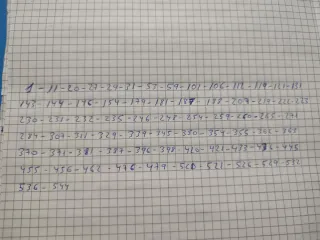 1 - 11 - 20 - 23 - 24 - 31 - 52 - 59 - 101 - 106 - 112 - 119 - 121 - 131
142 - 144 - 146 - 154 - 179 - 181 - 187 - 188 - 209 - 214 - 222 - 223
230 - 231 - 232 - 235 - 246 - 248 - 254 - 259 - 260 - 265 - 271
284 - 307 - 311 - 329 - 339 - 345 - 350 - 354 - 355
370 - 371 - 381 - 387 - 396 - 398 - 420 - 421 - 433 - 436 - 445
455 - 456 - 462 - 476 - 479 - 521 - 526 - 527 - 532
536 - 544